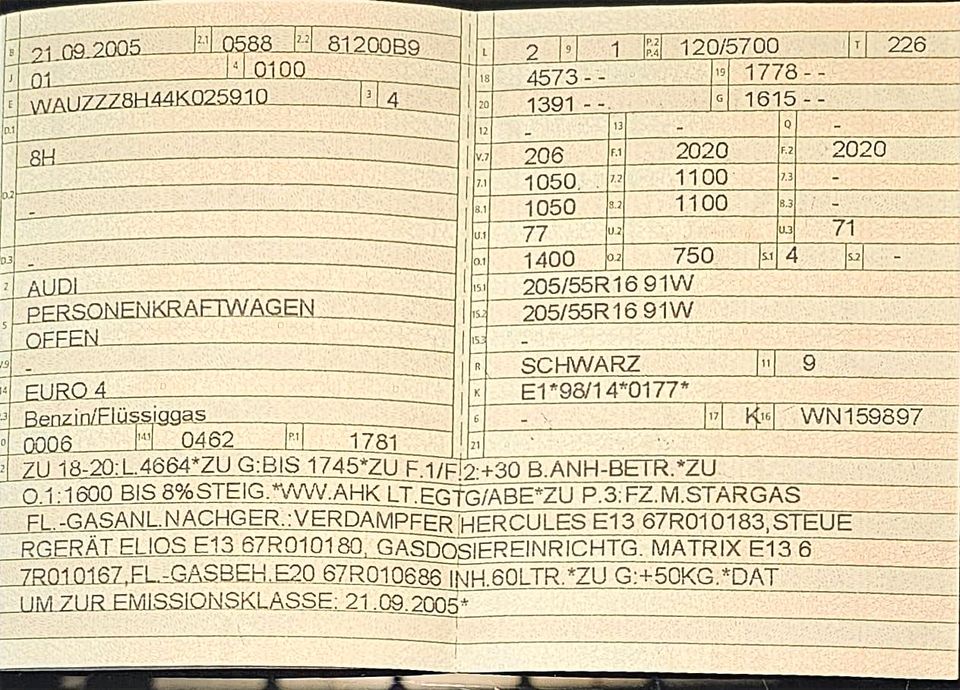 B 21.09.2005 2.1 0588 2.2 81200B9
J 01 4 0100
E WAUZZZ8H44K025910 3 4
D.1
8H
D.2
-
D.3 -
2 AUDI
5 PERSONENKRAFTWAGEN
OFFEN
V.9 -
14 EURO 4
P.3 Benzin/Flüssiggas
10 0006 14.1 0462 P.1 1781
L 2 9 1 P.2 P.4 120/5700 T 226
18 4573 - - 19 1778 - -
20 1391 - - G 1615 - -
12 - 13 - Q -
V.7 206 F.1 2020 F.2 2020
7.1 1050 7.2 1100 7.3 -
8.1 1050 8.2 1100 8.3 -
U.1 77 U.2 U.3 71
O.1 1400 O.2 750 S.1 4 S.2 -
15.1 205/55R16 91W
15.2 205/55R16 91W
15.3 -
R SCHWARZ 11 9
K E1*98/14*0177*
6 - 17 K 16 WN159897
21
22 ZU 18-20:L.4664*ZU G:BIS 1745*ZU F.1/F.2:+30 B.ANH-BETR.*ZU
O.1:1600 BIS 8%STEIG.*WW.AHK LT.EGTG/ABE*ZU P.3:FZ.M.STARGAS
FL.-GASANL.NACHGER.:VERDAMPFER HERCULES E13 67R010183,STEUE
RGERÄT ELIOS E13 67R010180, GASDOSIEREINRICHTG. MATRIX E13 6
7R010167,FL.-GASBEH.E20 67R010686 INH.60LTR.*ZU G:+50KG.*DAT
UM ZUR EMISSIONSKLASSE: 21.09.2005*